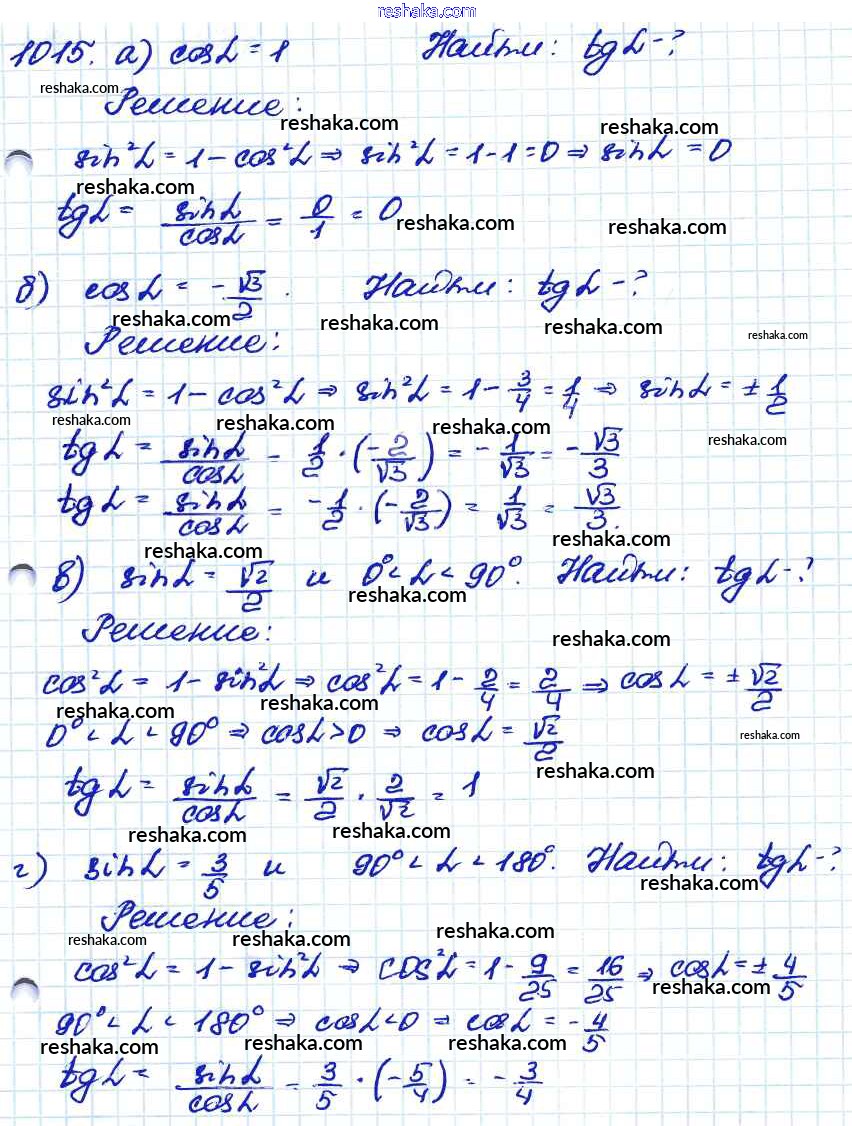 reshaka.com
1015. а) cosL = 1 Найти: tgL - ?
reshaka.com
Решение:
reshaka.com reshaka.com
sin²L = 1 - cos²L ⇒ sin²L = 1 - 1 = 0 ⇒ sinL = 0
reshaka.com
tgL = sinL/cosL = 0/1 = 0
reshaka.com reshaka.com
б) cosL = -√3/2. Найти: tgL - ?
reshaka.com reshaka.com reshaka.com
Решение: reshaka.com
sin²L = 1 - cos²L ⇒ sin²L = 1 - 3/4 = 1/4 ⇒ sinL = ± 1/2
reshaka.com reshaka.com reshaka.com reshaka.com
tgL = sinL/cosL = 1/2 · (-2/√3) = -1/√3 = -√3/3
tgL = sinL/cosL = -1/2 · (-2/√3) = 1/√3 = √3/3.
reshaka.com reshaka.com
в) sinL = √2/2 и 0° < L < 90°. Найти: tgL - ?
reshaka.com
Решение:
reshaka.com
cos²L = 1 - sin²L ⇒ cos²L = 1 - 2/4 = 2/4 ⇒ cosL = ± √2/2
reshaka.com reshaka.com reshaka.com
0° < L < 90° ⇒ cosL > 0 ⇒ cosL = √2/2
reshaka.com reshaka.com
tgL = sinL/cosL = √2/2 · 2/√2 = 1
reshaka.com reshaka.com
г) sinL = 3/5 и 90° < L < 180°. Найти: tgL - ?
reshaka.com
Решение:
reshaka.com reshaka.com reshaka.com
cos²L = 1 - sin²L ⇒ cos²L = 1 - 9/25 = 16/25 ⇒ cosL = ± 4/5
reshaka.com
90° < L < 180° ⇒ cosL < 0 ⇒ cosL = -4/5
reshaka.com reshaka.com reshaka.com
tgL = sinL/cosL = 3/5 · (-5/4) = -3/4